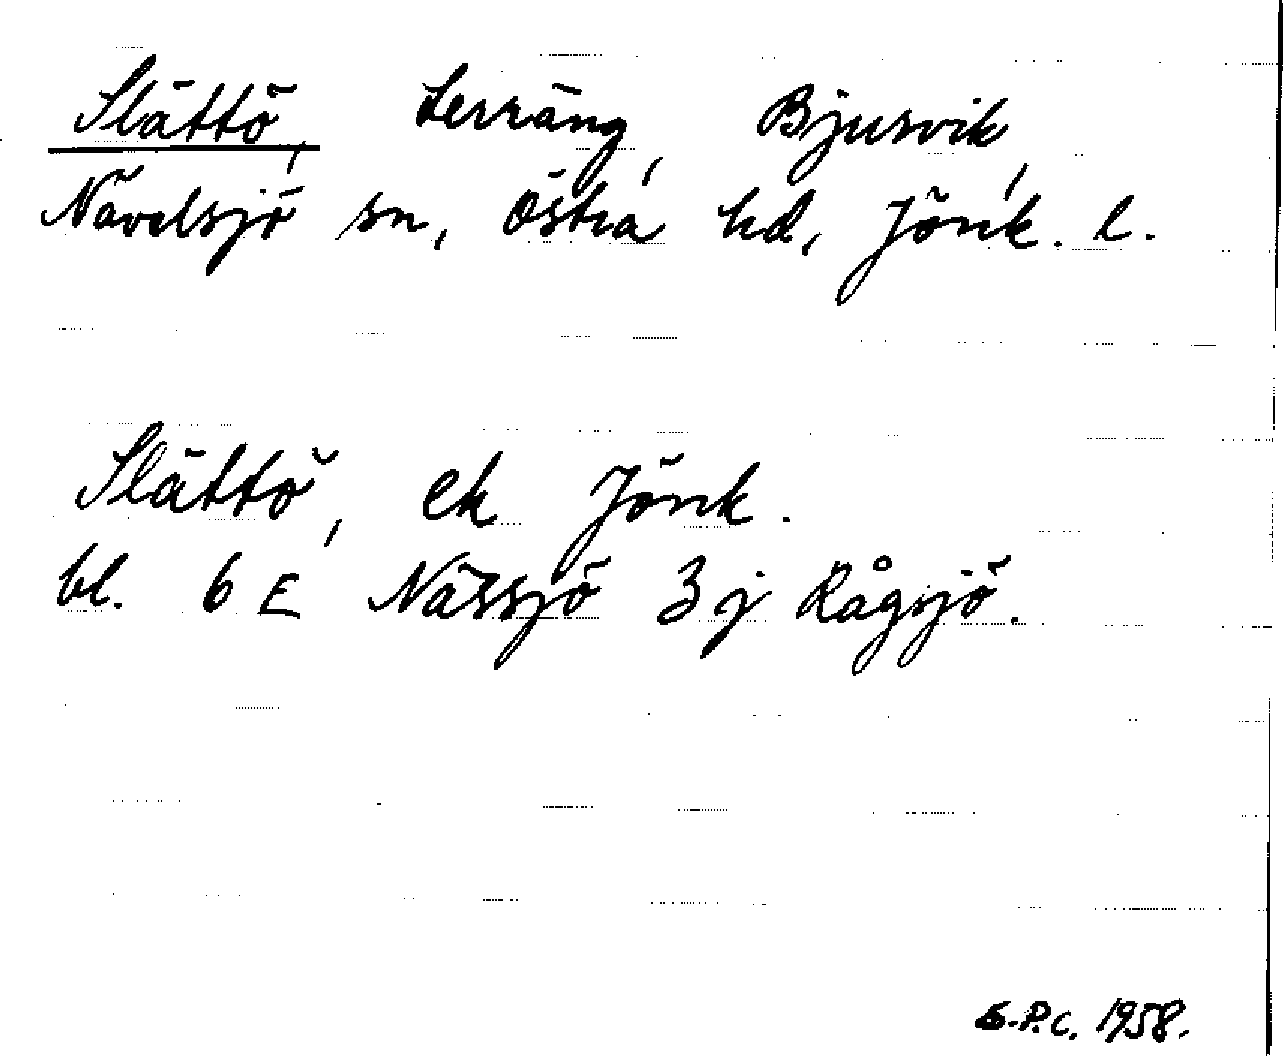 Slättö, terräng, Bjursvik,
Nävelsjö sn, Östra hd, Jönk. l.
Slättö, ek Jönk.
bl. 6 E Nässjö 3 j Rågsjö.
G.P.C. 1958.